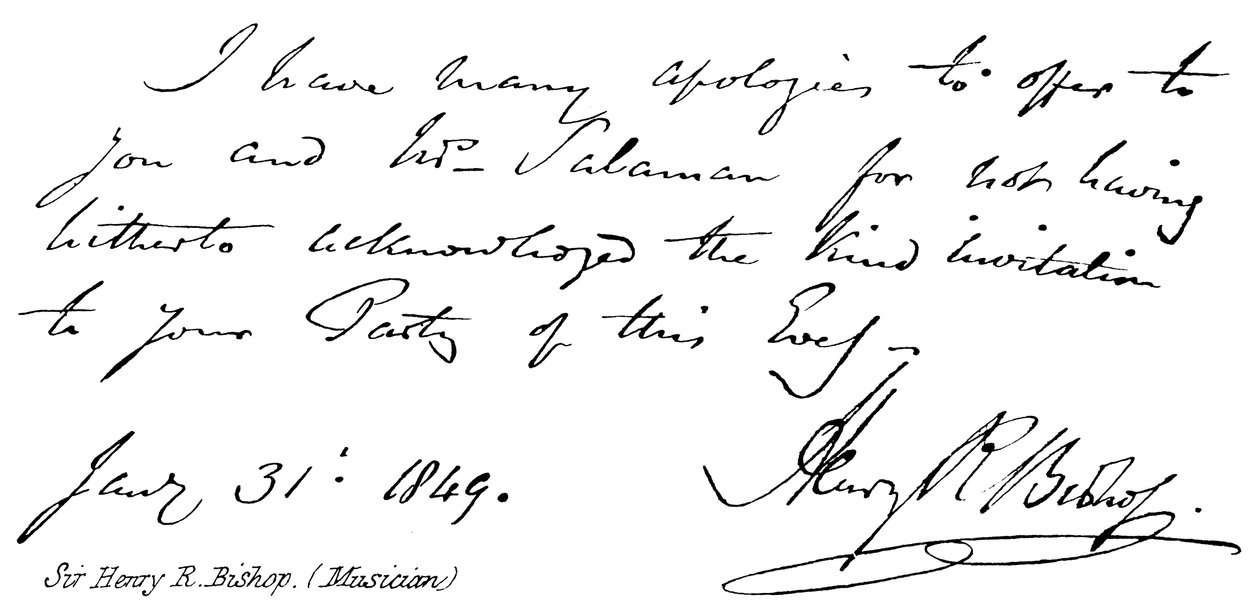 I have many apologies to offer to
you and Mrs Salaman for not having
hitherto acknowledged the kind invitation
to your Party of this Eveg —
Jany 31st 1849.
Henry R Bishop.
Sir Henry R. Bishop. (Musician)